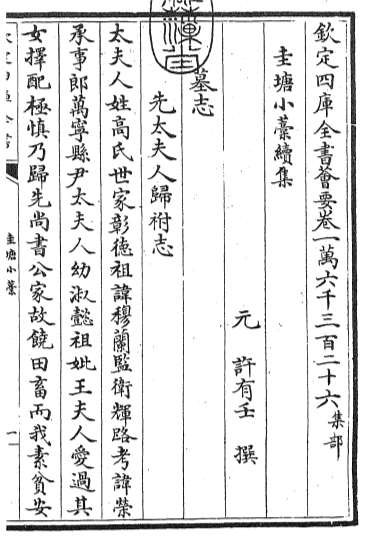 欽定四庫全書薈要卷一萬六千三百二十六集部
圭塘小藁續集
元許有壬撰
墓志
先太夫人歸祔志
太夫人姓高氏世家彰德祖諱穆蘭監衛輝路考諱榮
承事郎萬寧縣尹太夫人幼淑懿祖妣王夫人愛過其
女擇配極慎乃歸先尚書公家故饒田畜而我素貧安
圭塘小藁
一